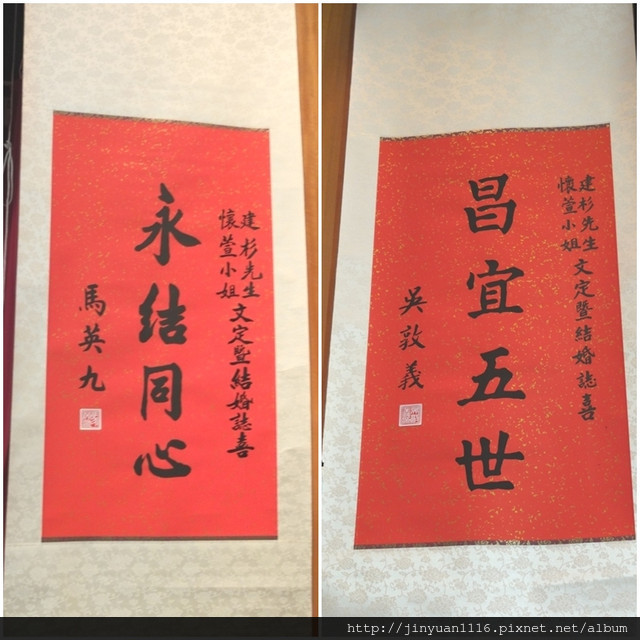 建杉先生
懷萱小姐
文定暨結婚誌喜
永結同心
馬英九
建杉先生
懷萱小姐
文定暨結婚誌喜
昌宜五世
吳敦義
http://jinyuan1116.pixnet.net/album